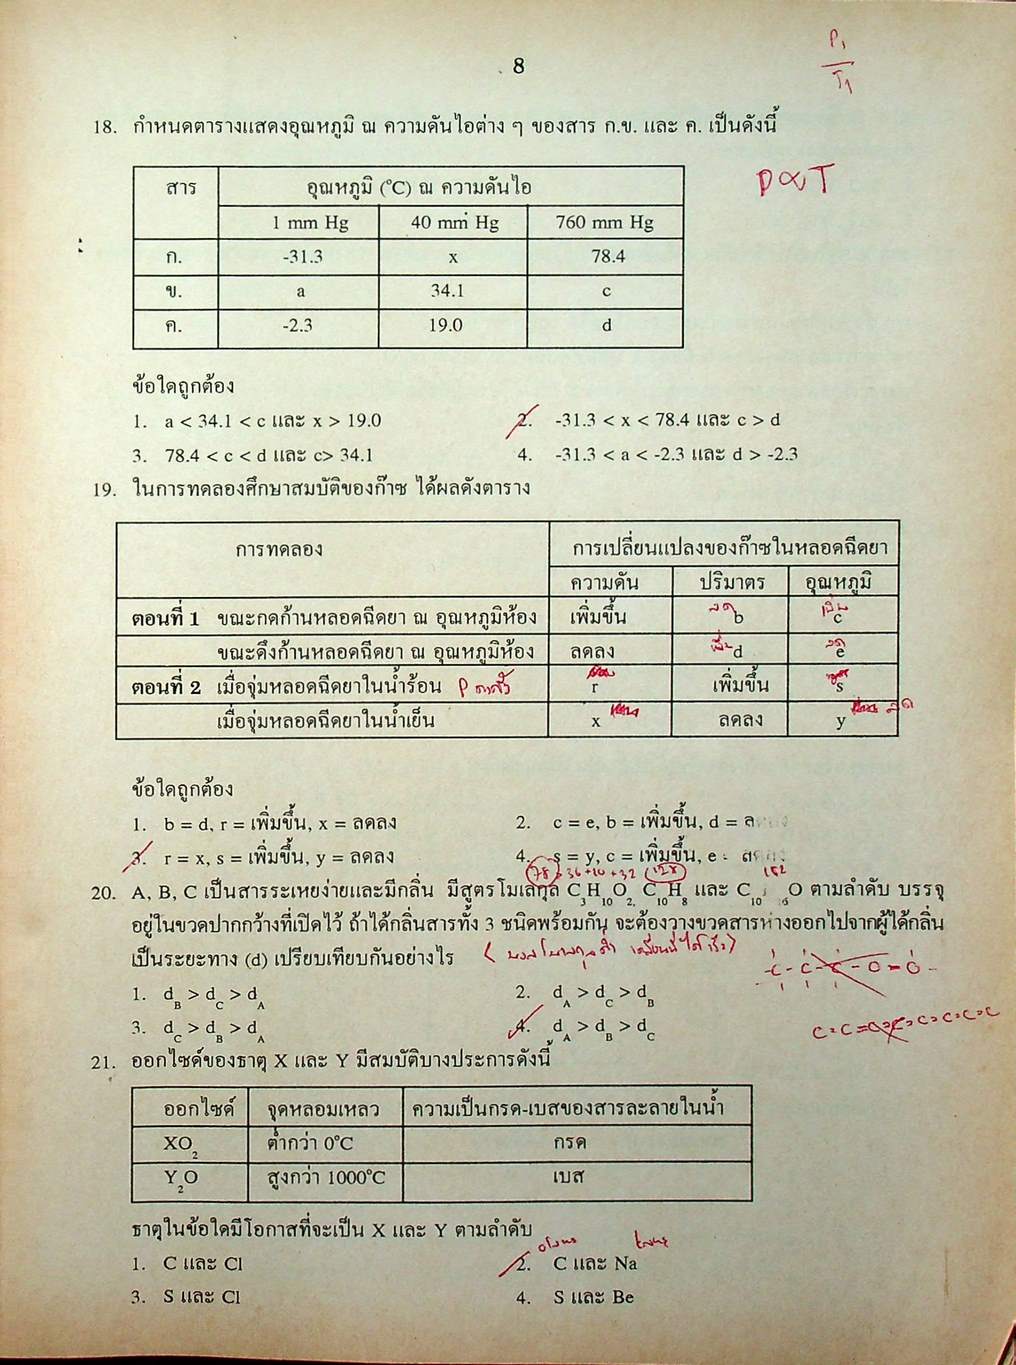 8
P₁
T₁
18. กำหนดตารางแสดงอุณหภูมิ ณ ความดันไอต่าง ๆ ของสาร ก.ข. และ ค. เป็นดังนี้
P∝T
สาร อุณหภูมิ (°C) ณ ความดันไอ
1 mm Hg 40 mm Hg 760 mm Hg
ก. -31.3 x 78.4
ข. a 34.1 c
ค. -2.3 19.0 d
ข้อใดถูกต้อง
1. a < 34.1 < c และ x > 19.0 2. -31.3 < x < 78.4 และ c > d
3. 78.4 < c < d และ c> 34.1 4. -31.3 < a < -2.3 และ d > -2.3
19. ในการทดลองศึกษาสมบัติของก๊าซ ได้ผลดังตาราง
การทดลอง การเปลี่ยนแปลงของก๊าซในหลอดฉีดยา
ความดัน ปริมาตร อุณหภูมิ
ตอนที่ 1 ขณะกดก้านหลอดฉีดยา ณ อุณหภูมิห้อง เพิ่มขึ้น ลด b เพิ่ม c
ขณะดึงก้านหลอดฉีดยา ณ อุณหภูมิห้อง ลดลง เพิ่ม d ลด e
ตอนที่ 2 เมื่อจุ่มหลอดฉีดยาในน้ำร้อน P คงตัว r เพิ่มขึ้น s
เมื่อจุ่มหลอดฉีดยาในน้ำเย็น x ลดลง y ลด
ข้อใดถูกต้อง
1. b = d, r = เพิ่มขึ้น, x = ลดลง 2. c = e, b = เพิ่มขึ้น, d = ลดลง
3. r = x, s = เพิ่มขึ้น, y = ลดลง 4. s = y, c = เพิ่มขึ้น, e = ลดลง
78 36+10+32 128 152
20. A, B, C เป็นสารระเหยง่ายและมีกลิ่น มีสูตรโมเลกุล C₃H₁₀O₂, C₁₀H₈ และ C₁₀ ₆O ตามลำดับ บรรจุ
อยู่ในขวดปากกว้างที่เปิดไว้ ถ้าได้กลิ่นสารทั้ง 3 ชนิดพร้อมกัน จะต้องวางขวดสารห่างออกไปจากผู้ได้กลิ่น
เป็นระยะทาง (d) เปรียบเทียบกันอย่างไร (มวลโมเลกุลต่ำ เคลื่อนที่ได้เร็ว)
-C-C-C-O=O-
1. d_B > d_C > d_A 2. d_A > d_C > d_B
3. d_C > d_B > d_A 4. d_A > d_B > d_C
21. ออกไซด์ของธาตุ X และ Y มีสมบัติบางประการดังนี้
ออกไซด์ จุดหลอมเหลว ความเป็นกรด-เบสของสารละลายในน้ำ
XO₂ ต่ำกว่า 0°C กรด
Y₂O สูงกว่า 1000°C เบส
ธาตุในข้อใดมีโอกาสที่จะเป็น X และ Y ตามลำดับ
อโลหะ โลหะ
1. C และ Cl 2. C และ Na
3. S และ Cl 4. S และ Be